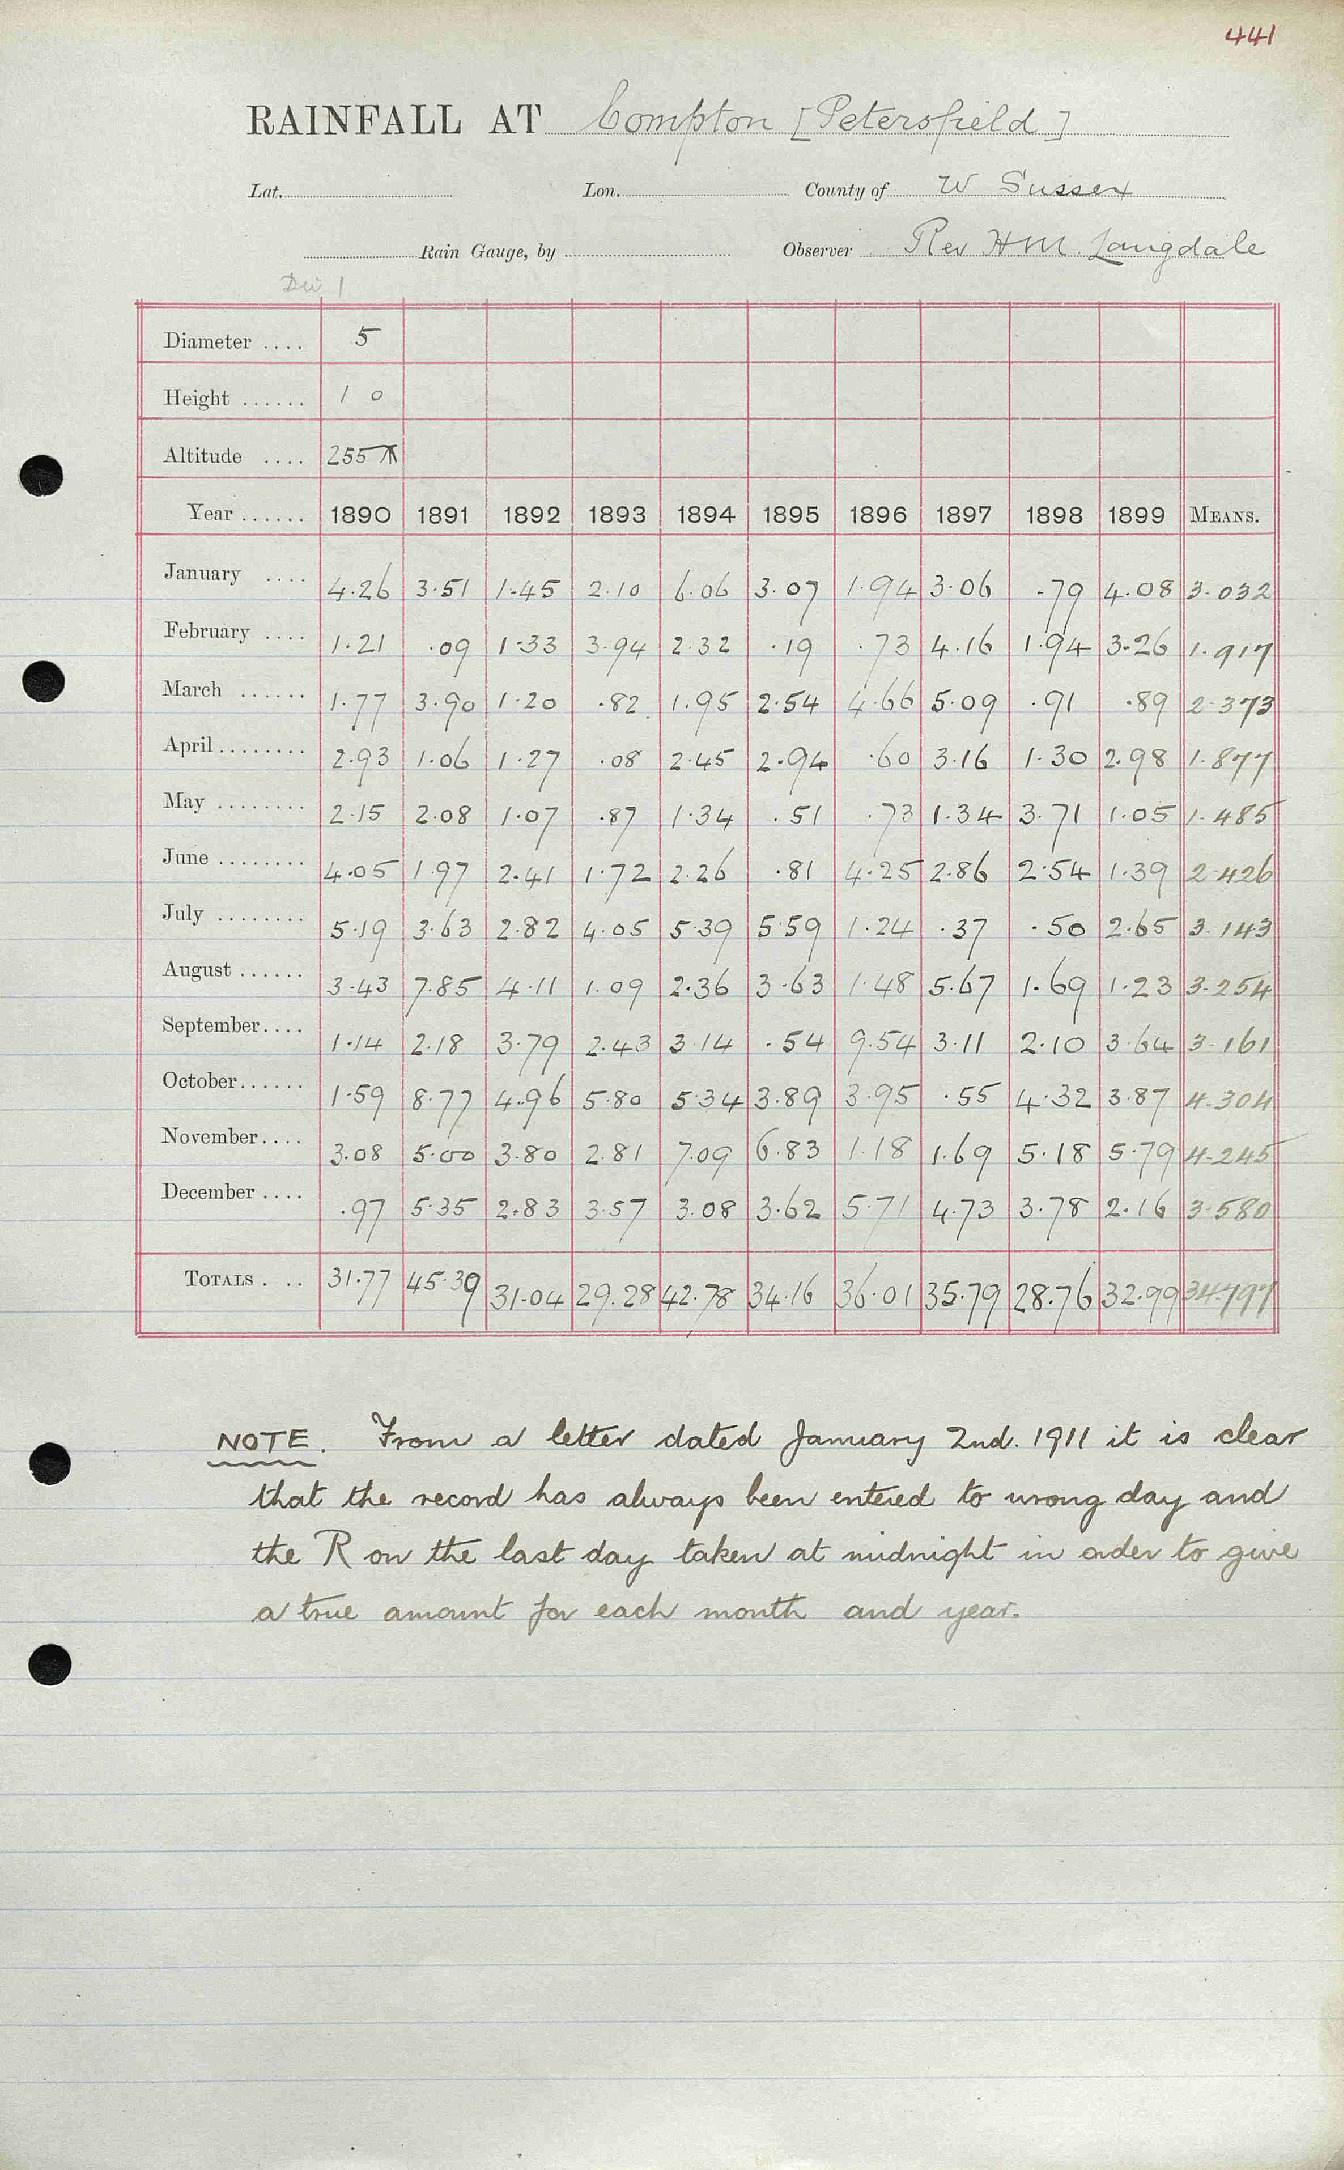 441
RAINFALL AT Compton [Petersfield]
Lat. Lon. County of W Sussex
Rain Gauge, by Observer Rev H M. Langdale
Div 1
Diameter .... 5
Height ...... 1 0
Altitude .... 255
Year ...... 1890 1891 1892 1893 1894 1895 1896 1897 1898 1899 MEANS.
January .... 4.26 3.51 1.45 2.10 6.06 3.07 1.94 3.06 .79 4.08 3.032
February .... 1.21 .09 1.33 3.94 2.32 .19 .73 4.16 1.94 3.26 1.917
March ...... 1.77 3.90 1.20 .82 1.95 2.54 4.66 5.09 .91 .89 2.373
April ........ 2.93 1.06 1.27 .08 2.45 2.94 .60 3.16 1.30 2.98 1.877
May ........ 2.15 2.08 1.07 .87 1.34 .51 .73 1.34 3.71 1.05 1.485
June ........ 4.05 1.97 2.41 1.72 2.26 .81 4.25 2.86 2.54 1.39 2.426
July ........ 5.19 3.63 2.82 4.05 5.39 5.59 1.24 .37 .50 2.65 3.143
August ...... 3.43 7.85 4.11 1.09 2.36 3.63 1.48 5.67 1.69 1.23 3.254
September.... 1.14 2.18 3.79 2.43 3.14 .54 9.54 3.11 2.10 3.64 3.161
October...... 1.59 8.77 4.96 5.80 5.34 3.89 3.95 .55 4.32 3.87 4.304
November.... 3.08 5.00 3.80 2.81 7.09 6.83 1.18 1.69 5.18 5.79 4.245
December .... .97 5.35 2.83 3.57 3.08 3.62 5.71 4.73 3.78 2.16 3.580
TOTALS . .. 31.77 45.39 31.04 29.28 42.78 34.16 36.01 35.79 28.76 32.99 34.797
NOTE. From a letter dated January 2nd. 1911 it is clear
that the record has always been entered to wrong day and
the R on the last day taken at midnight in order to give
a true amount for each month and year.